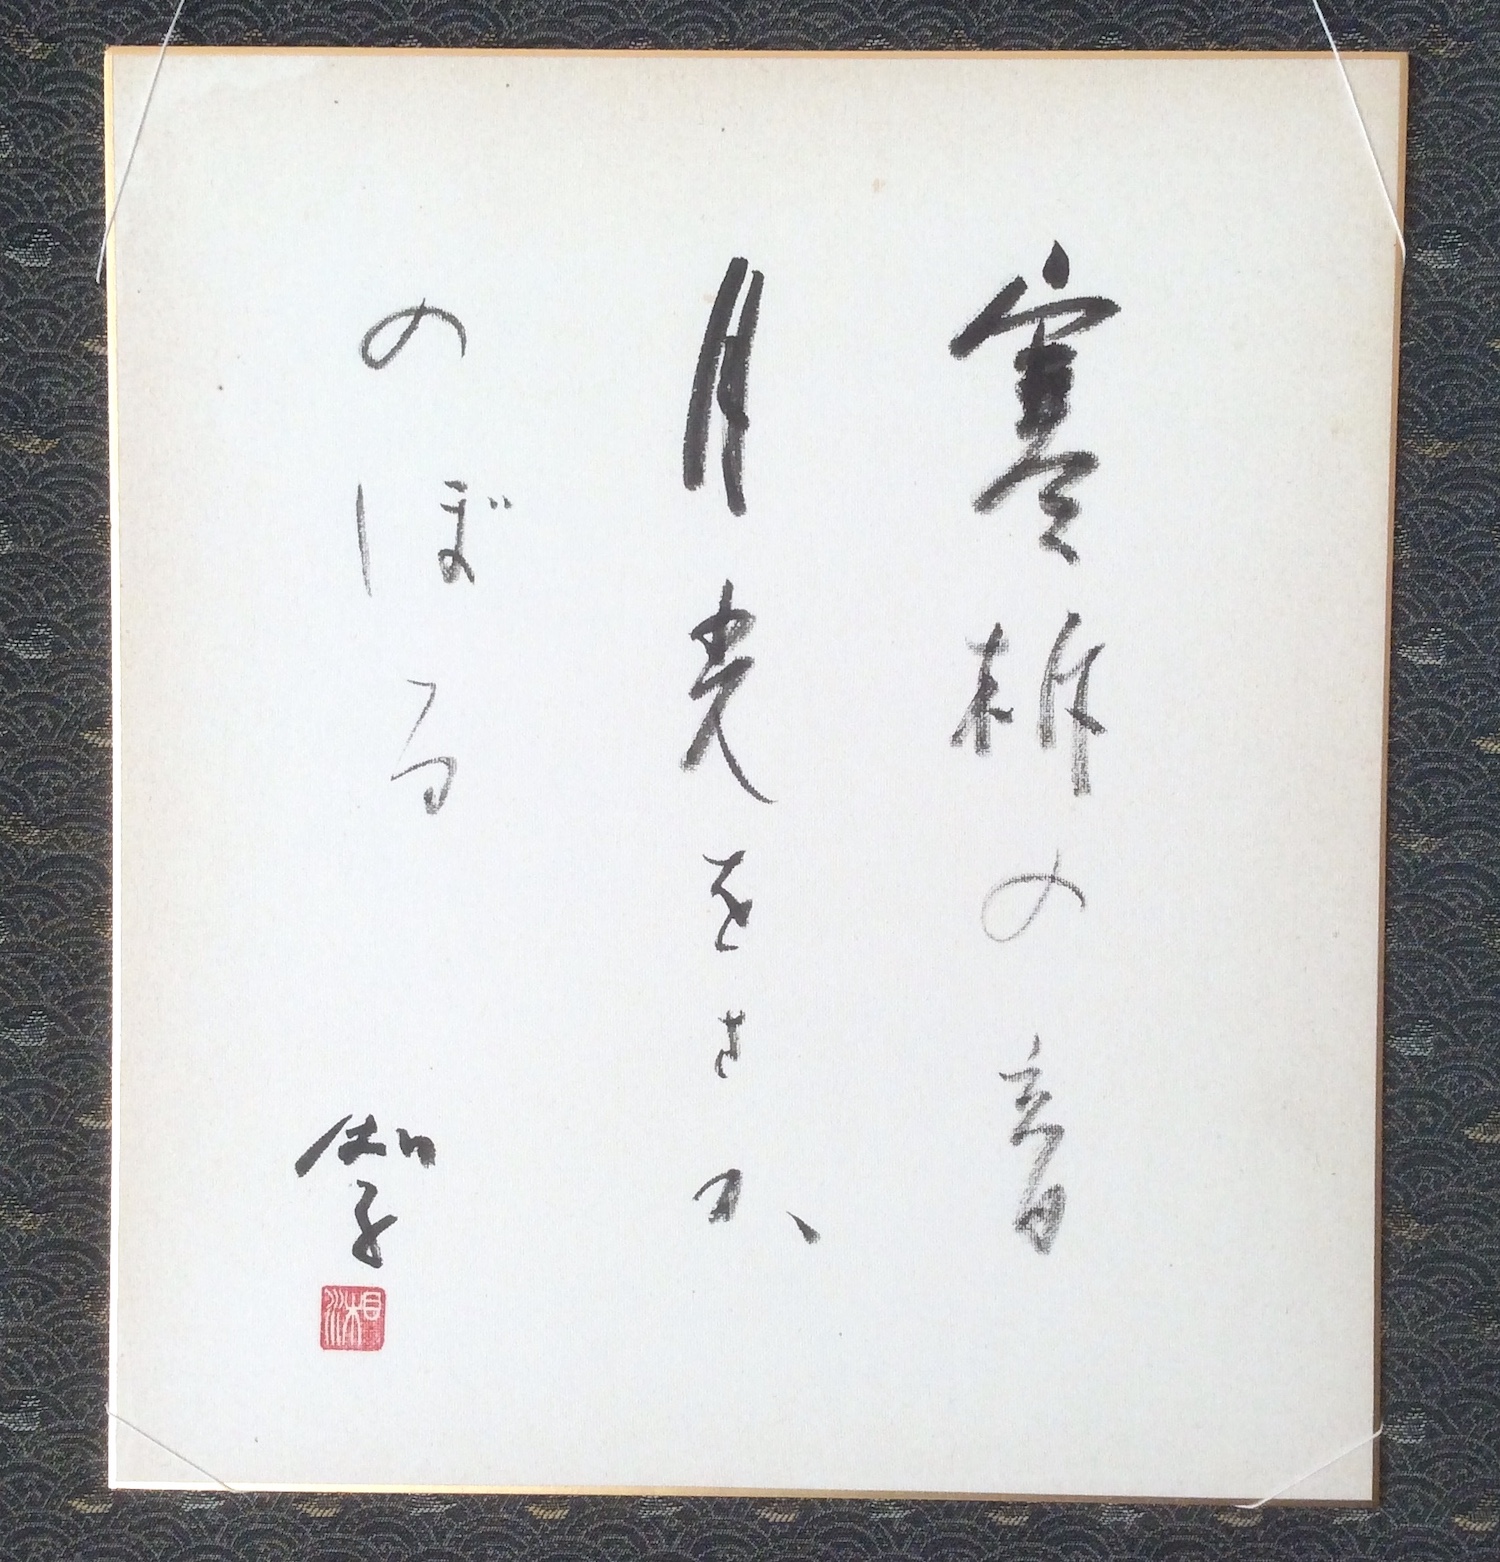 寒柝の音
月光をさか
のぼる
智子
湘